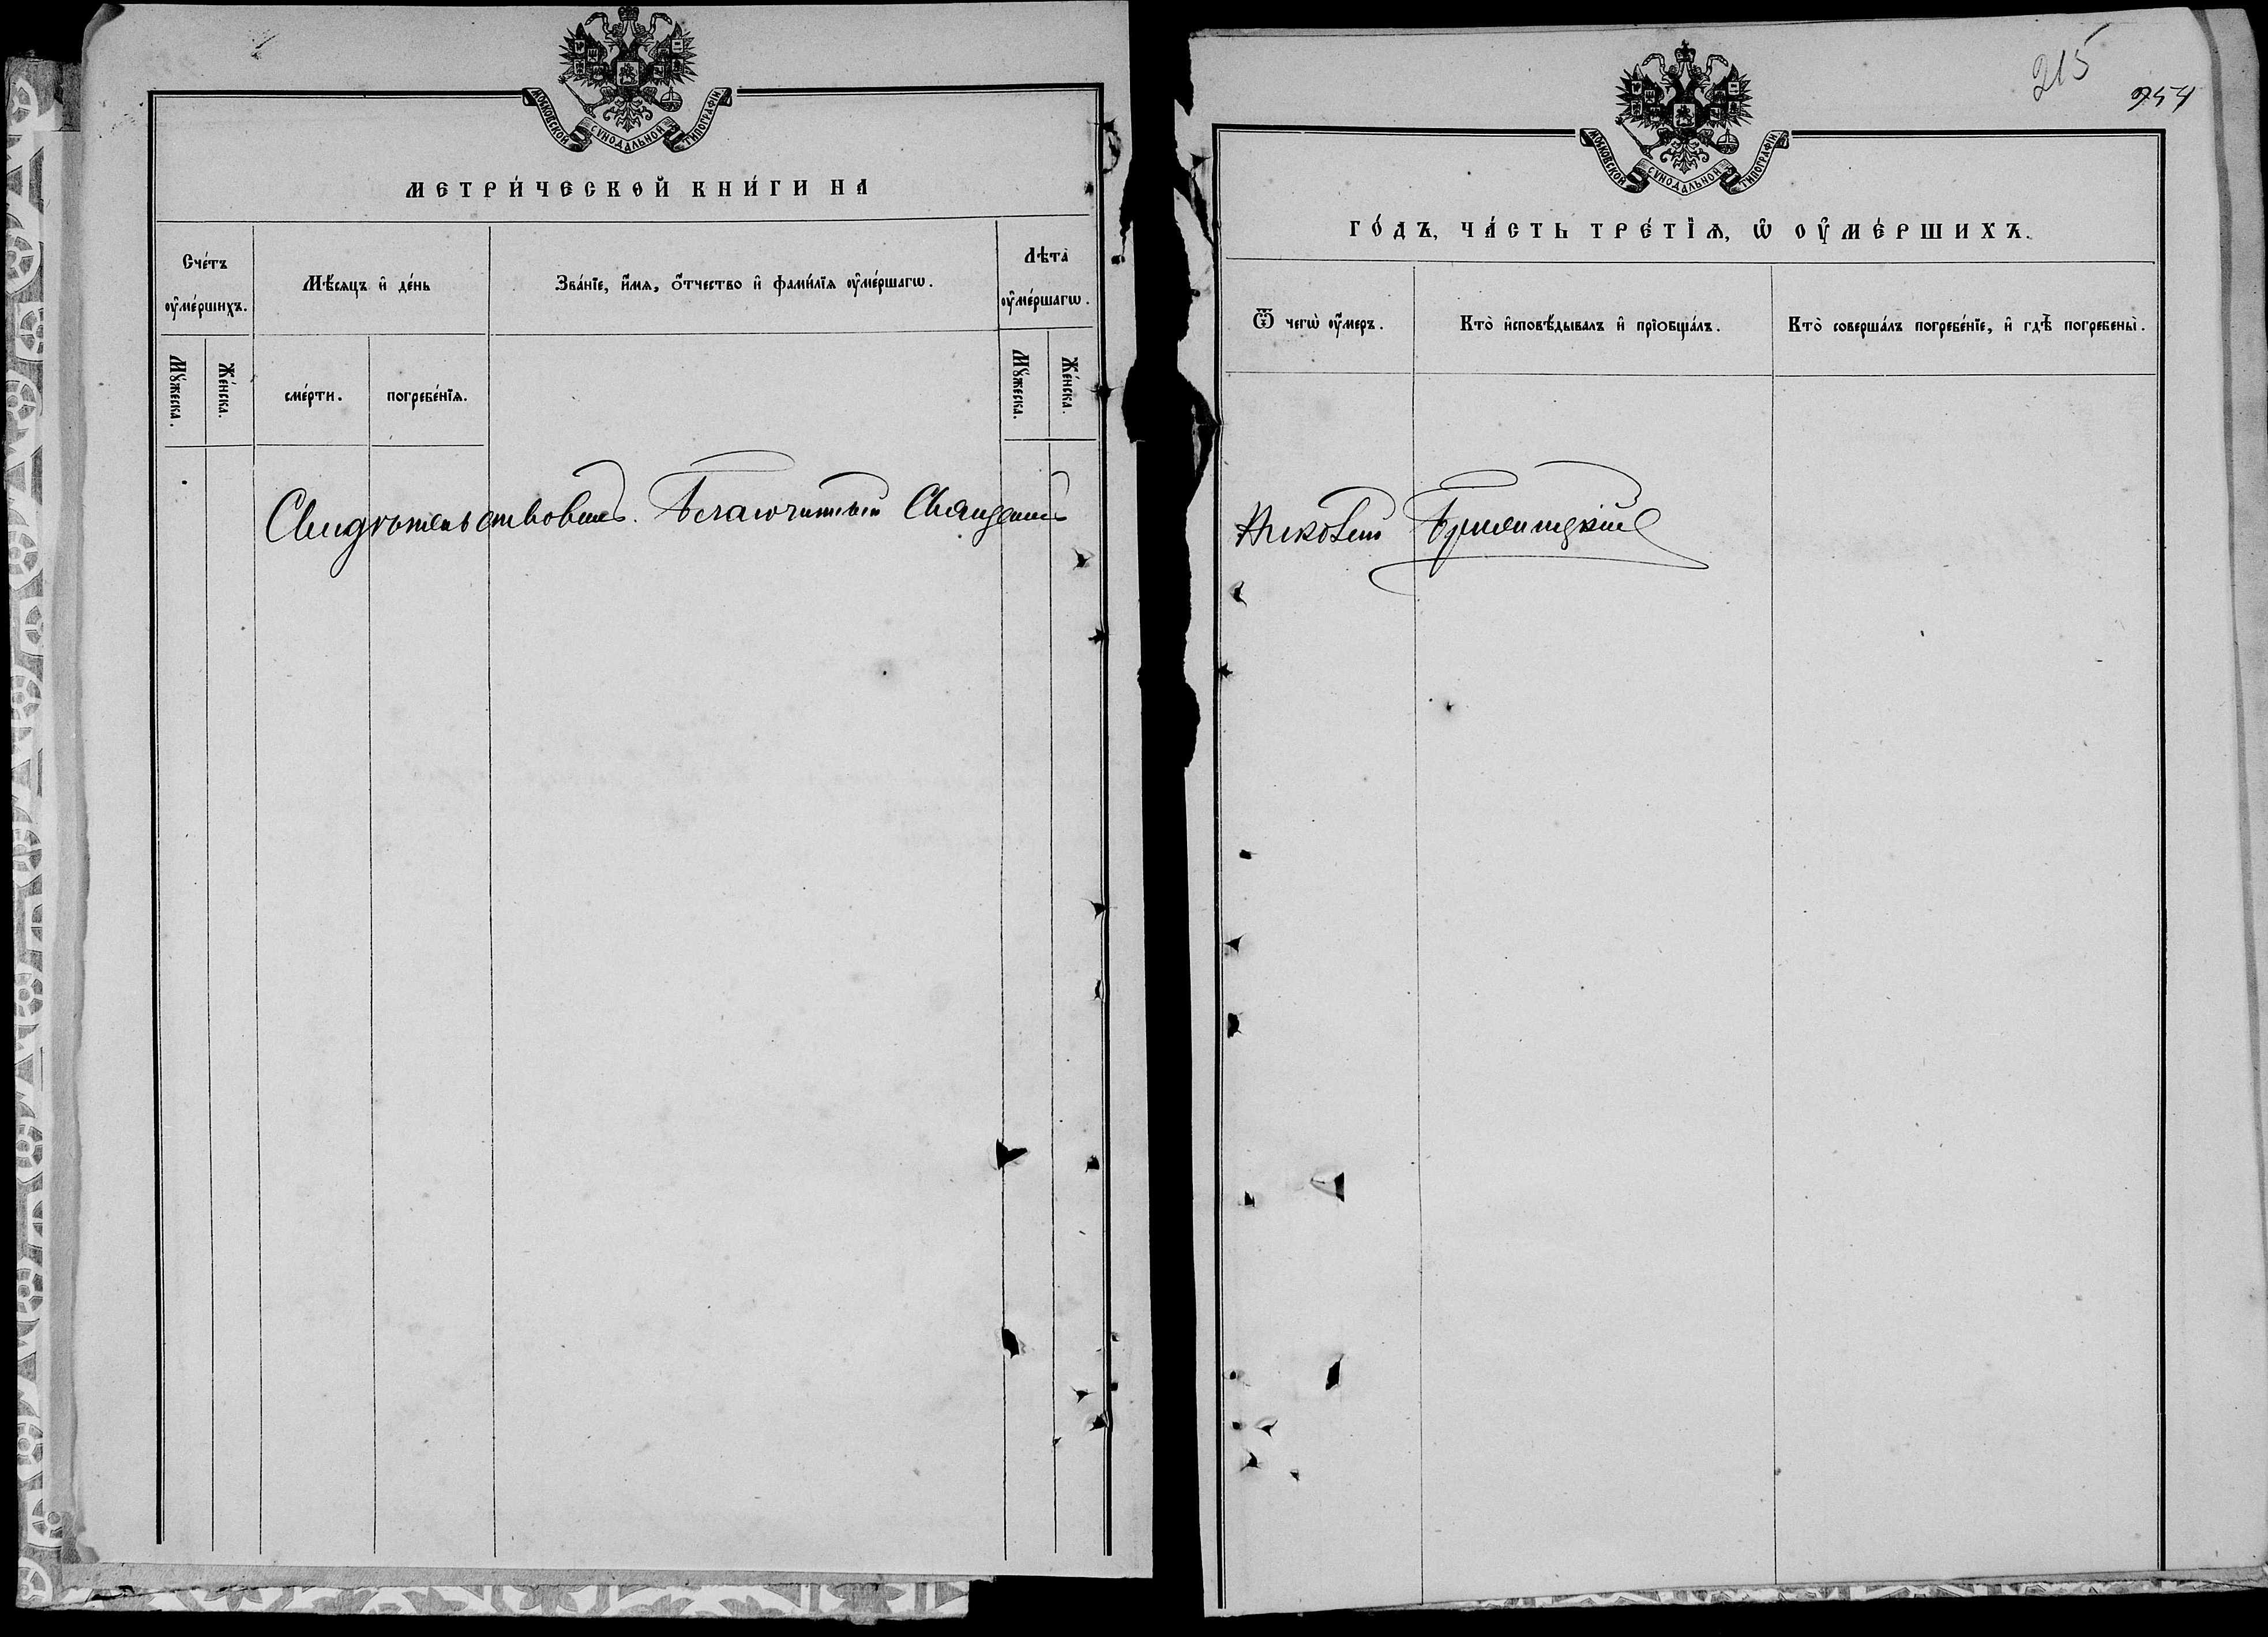 МОСКОВСКОЙ СѴНОДАЛЬНОЙ ТИПОГРАФІИ
МЕТРИ́ЧЕСКОЙ КНИ́ГИ НА
Сче́тъ ᲂу҆ме́ршихъ.
Мѣ́сяцъ и҆ де́нь
Зва́нїе, и҆́мѧ, ѻ҆́тчество и҆ фами́лїѧ ᲂу҆ме́ршагѡ.
Лѣта̀ ᲂу҆ме́ршагѡ.
Мꙋ́жеска.
Же́нска.
сме́рти.
погребе́нїѧ.
Мꙋ́жеска.
Же́нска.
Свидѣтельствовалъ. Благочинный Священникъ
215
254
МОСКОВСКОЙ СѴНОДАЛЬНОЙ ТИПОГРАФІИ
ГО́ДЪ, ЧА́СТЬ ТРЕ́ТЇѦ, Ѡ҆ ОУ҆МЕ́РШИХЪ.
Ѿ чегѡ̀ ᲂу҆́меръ.
Кто̀ и҆сповѣ́дывалъ и҆ прїобща́лъ.
Кто̀ соверша́лъ погребе́нїе, и҆ гдѣ̀ погребены̀.
Николай